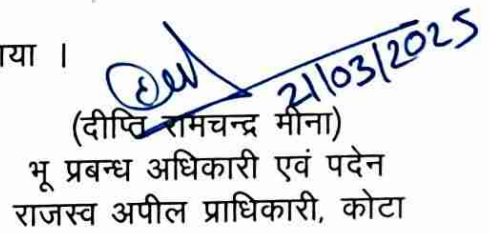 गया ।
21/03/2025
(दीप्ति रामचन्द्र मीना)
भू प्रबन्ध अधिकारी एवं पदेन
राजस्व अपील प्राधिकारी, कोटा